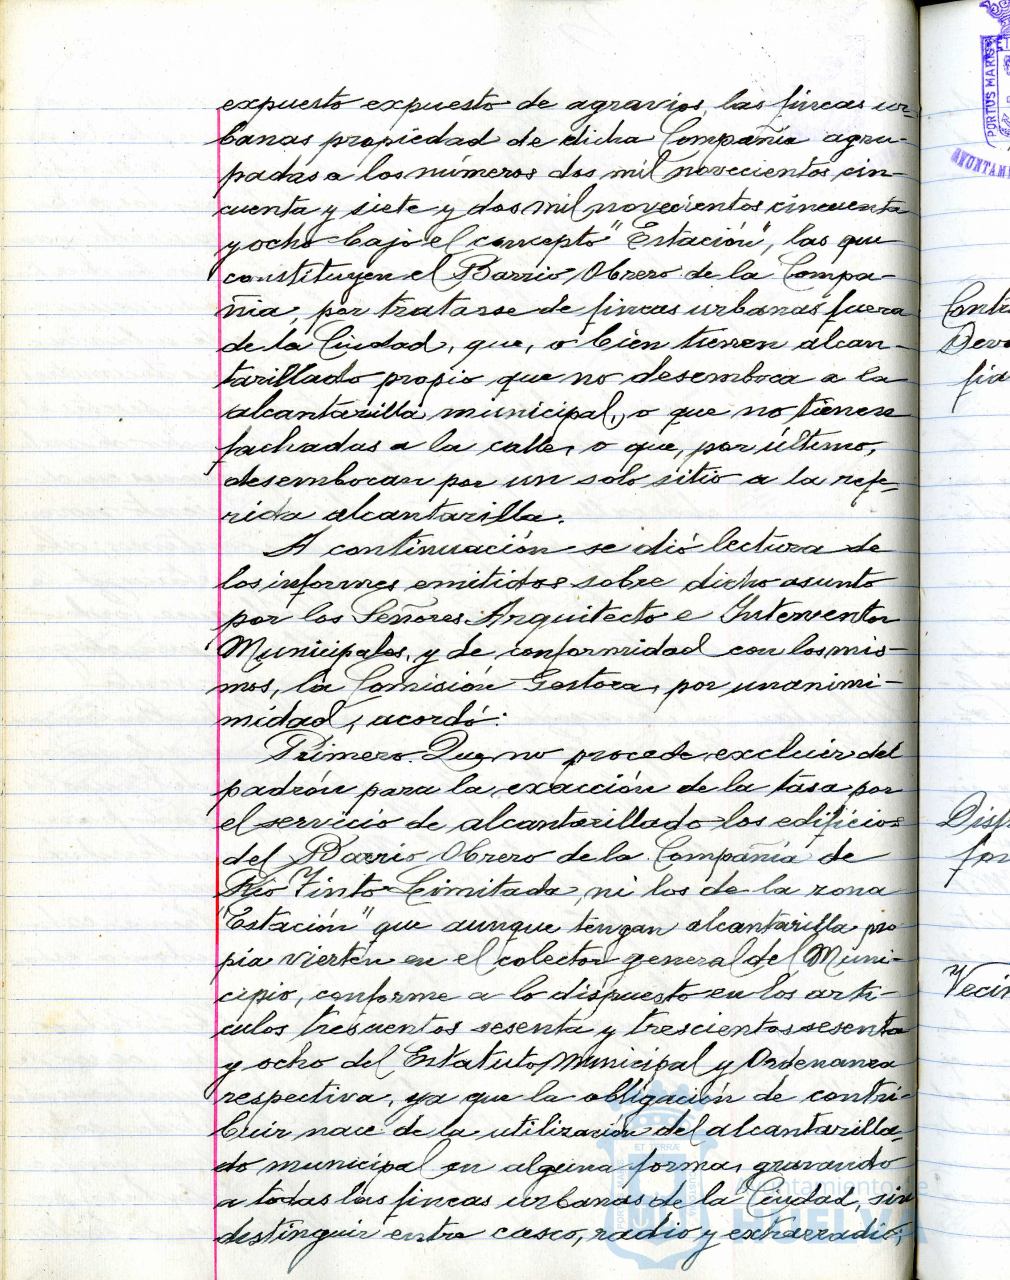 expuesto expuesto de agravios, las fincas ur-
banas propiedad de dicha Compañía agru-
padas a los números dos mil novecientos cin-
cuenta y siete y dos mil novecientos cincuenta
y ocho bajo el concepto "Estación", las que
constituyen el Barrio Obrero de la Compa-
ñia, por tratarse de fincas urbanas fuera
de la Ciudad, que, o bien tienen alcan-
tarillado propio que no desemboca a la
alcantarilla municipal, o que no tienen
fachadas a la calle, o que, por último,
desembocan por un solo sitio a la refe-
rida alcantarilla.
A continuación se dió lectura de
los informes emitidos sobre dicho asunto
por los Señores Arquitecto e Interventor
Municipales, y de conformidad con los mis-
mos, la Comisión Gestora, por unanimi-
midad, acordó:
Primero. Que no procede excluir del
padrón para la exacción de la tasa por
el servicio de alcantarillado los edificios
del Barrio Obrero de la Compañía de
Rio Tinto Limitada, ni los de la zona
"Estación" que aunque tengan alcantarilla pro
pia vierten en el colector general del Muni-
cipio, conforme a lo dispuesto en los artí-
culos trescientos sesenta y trescientos sesenta
y ocho del Estatuto Municipal y Ordenanza
respectiva, ya que la obligación de contri-
buir nace de la utilización del alcantarilla-
do municipal en alguna forma, gravando
a todas las fincas urbanas de la Ciudad, sin
destinguir entre casco, radio y extrarradio,
PORTUS MARIS
Ayuntamiento de
HUELVA